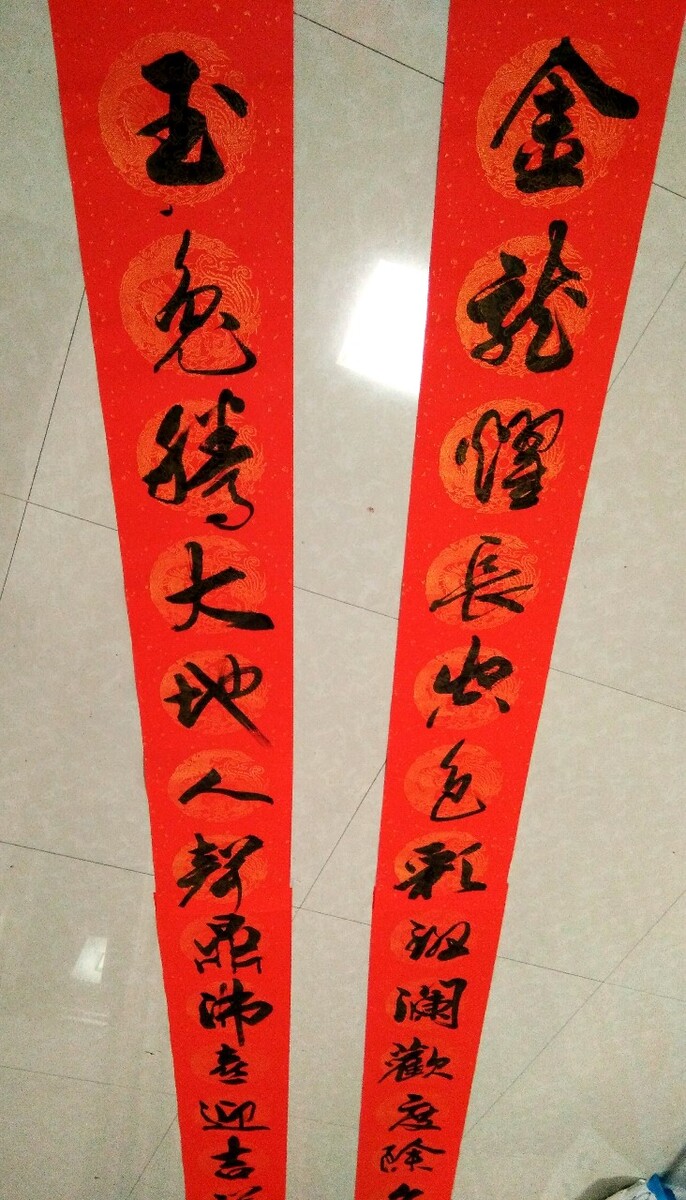 金龍燿長空色彩斑瀾歡度除
玉兔騰大地人聲鼎沸喜迎吉